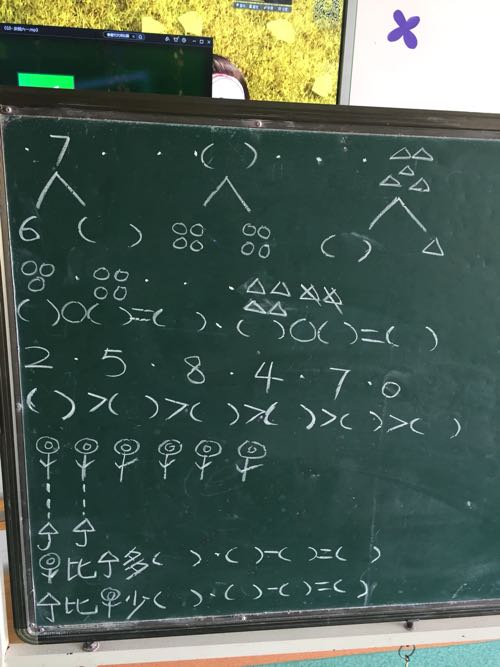 7 ( )
6 ( ) ( )
( )○( )=( ) · ( )○( )=( )
2 · 5 · 8 · 4 · 7 · 0
( )>( )>( )>( )>( )>( )
比 多( ) · ( )-( )=( )
比 少( ) · ( )-( )=( )